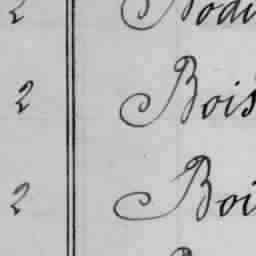 2 Bois
2 Boi